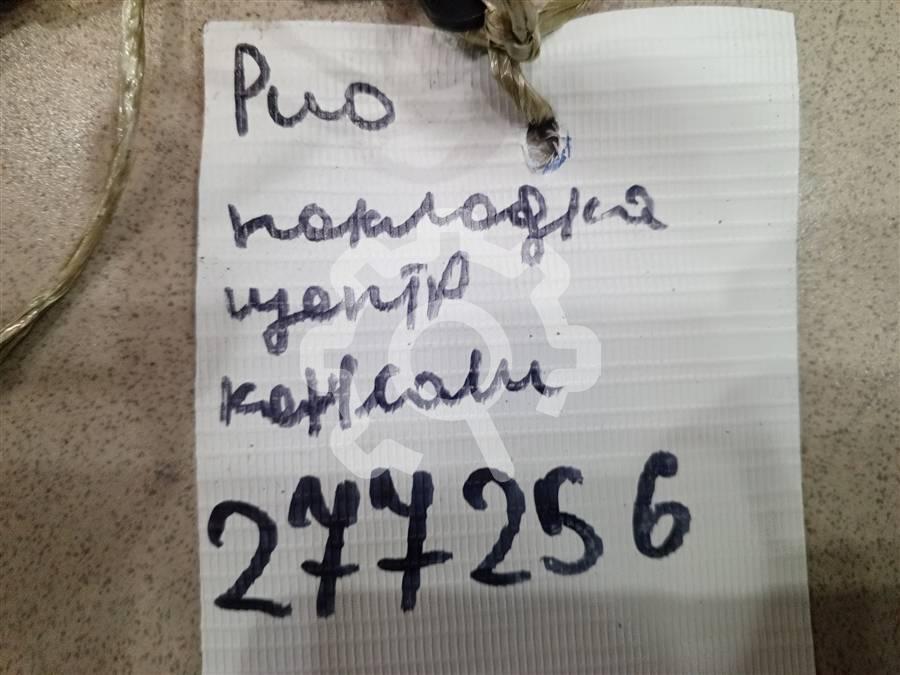 Рио
накладка
центр
консоли
277256